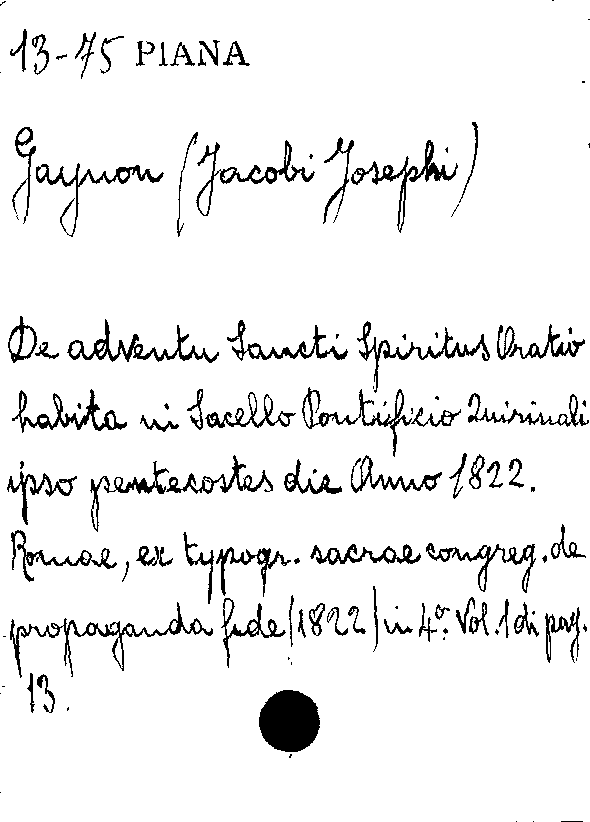 13-75 PIANA
Gaynon (Jacobi Josephi)
De adventu Sancti Spiritus Oratio
habita in Sacello Pontificio Quirinali
ipso pentecostes die Anno 1822.
Romae, ex typogr. sacrae congreg. de
propaganda fide (1822) in 4º. Vol. 1 di pag.
13.